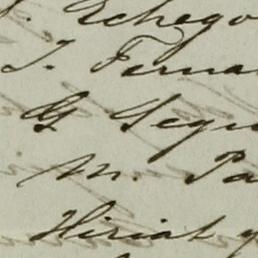 J. Echego
J. Ferna
G. Segu
M. Pa
Hiriat y